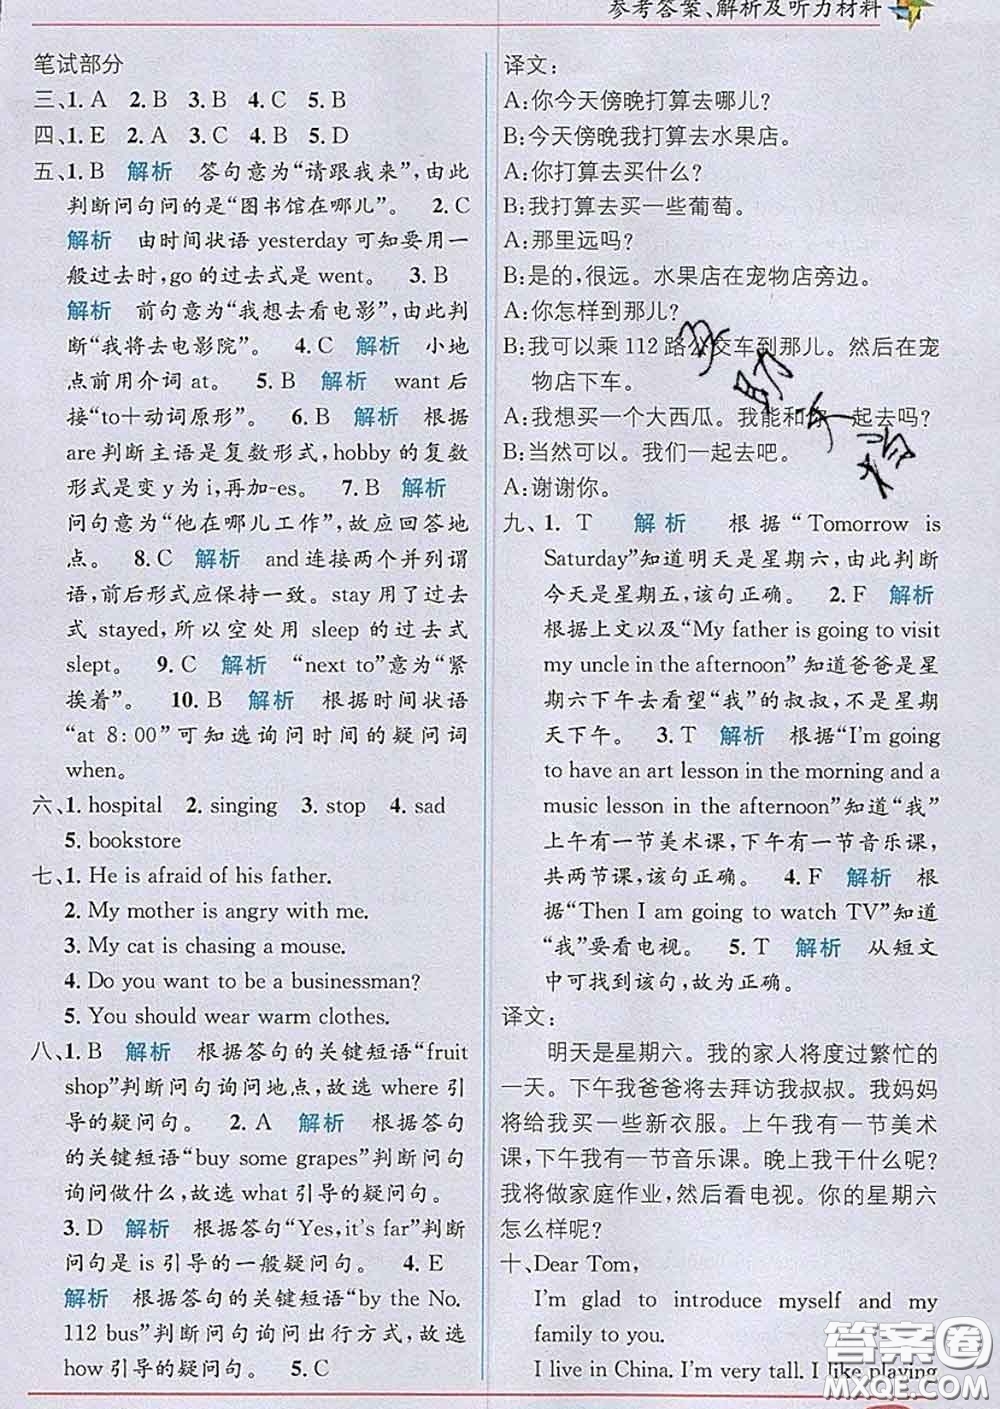 参考答案、解析及听力材料
笔试部分
三、1. A 2. B 3. B 4. C 5. B
四、1. E 2. A 3. C 4. B 5. D
五、1. B 解析 答句意为“请跟我来”,由此
判断问句问的是“图书馆在哪儿”。 2. C
解析 由时间状语 yesterday 可知要用一
般过去时,go 的过去式是 went。 3. B
解析 前句意为“我想去看电影”,由此判
断“我将去电影院”。 4. C 解析 小地
点前用介词 at。 5. B 解析 want 后
接“to+动词原形”。 6. B 解析 根据
are 判断主语是复数形式,hobby 的复数
形式是变 y 为 i,再加-es。 7. B 解析
问句意为“他在哪儿工作”,故应回答地
点。 8. C 解析 and连接两个并列谓
语,前后形式应保持一致。stay 用了过去
式 stayed,所以空处用 sleep 的过去式
slept。 9. C 解析 “next to”意为“紧
挨着”。 10. B 解析 根据时间状语
“at 8:00”可知选询问时间的疑问词
when。
六、1. hospital 2. singing 3. stop 4. sad
5. bookstore
七、1. He is afraid of his father.
2. My mother is angry with me.
3. My cat is chasing a mouse.
4. Do you want to be a businessman?
5. You should wear warm clothes.
八、1. B 解析 根据答句的关键短语“fruit
shop”判断问句询问地点,故选 where 引
导的疑问句。 2. A 解析 根据答句
的关键短语“buy some grapes”判断问句
询问做什么,故选 what 引导的疑问句。
3. D 解析 根据答句“Yes,it's far”判断
问句是 is 引导的一般疑问句。 4. E
解析 根据答句的关键短语“by the No.
112 bus”判断问句询问出行方式,故选
how 引导的疑问句。 5. C
译文:
A:你今天傍晚打算去哪儿?
B:今天傍晚我打算去水果店。
A:你打算去买什么?
B:我打算去买一些葡萄。
A:那里远吗?
B:是的,很远。水果店在宠物店旁边。
A:你怎样到那儿?
B:我可以乘 112 路公交车到那儿。然后在宠
物店下车。
A:我想买一个大西瓜。我能和你一起去吗?
B:当然可以。我们一起去吧。
A:谢谢你。
九、1. T 解析 根据“Tomorrow is
Saturday”知道明天是星期六,由此判断
今天是星期五,该句正确。 2. F 解析
根据上文以及“My father is going to visit
my uncle in the afternoon”知道爸爸是星
期六下午去看望“我”的叔叔,不是星期
天下午。 3. T 解析 根据“I'm going
to have an art lesson in the morning and a
music lesson in the afternoon”知道“我”
上午有一节美术课,下午有一节音乐课,
共两节课,该句正确。 4. F 解析 根
据“Then I am going to watch TV”知道
“我”要看电视。 5. T 解析 从短文
中可找到该句,故为正确。
译文:
明天是星期六。我的家人将度过繁忙的
一天。下午我爸爸将去拜访我叔叔。我妈妈
将给我买一些新衣服。上午我有一节美术
课,下午我有一节音乐课。晚上我干什么呢?
我将做家庭作业,然后看电视。你的星期六
怎么样呢?
十、Dear Tom,
I'm glad to introduce myself and my
family to you.
I live in China. I'm very tall. I like playing
答案圈
MXQE.COM